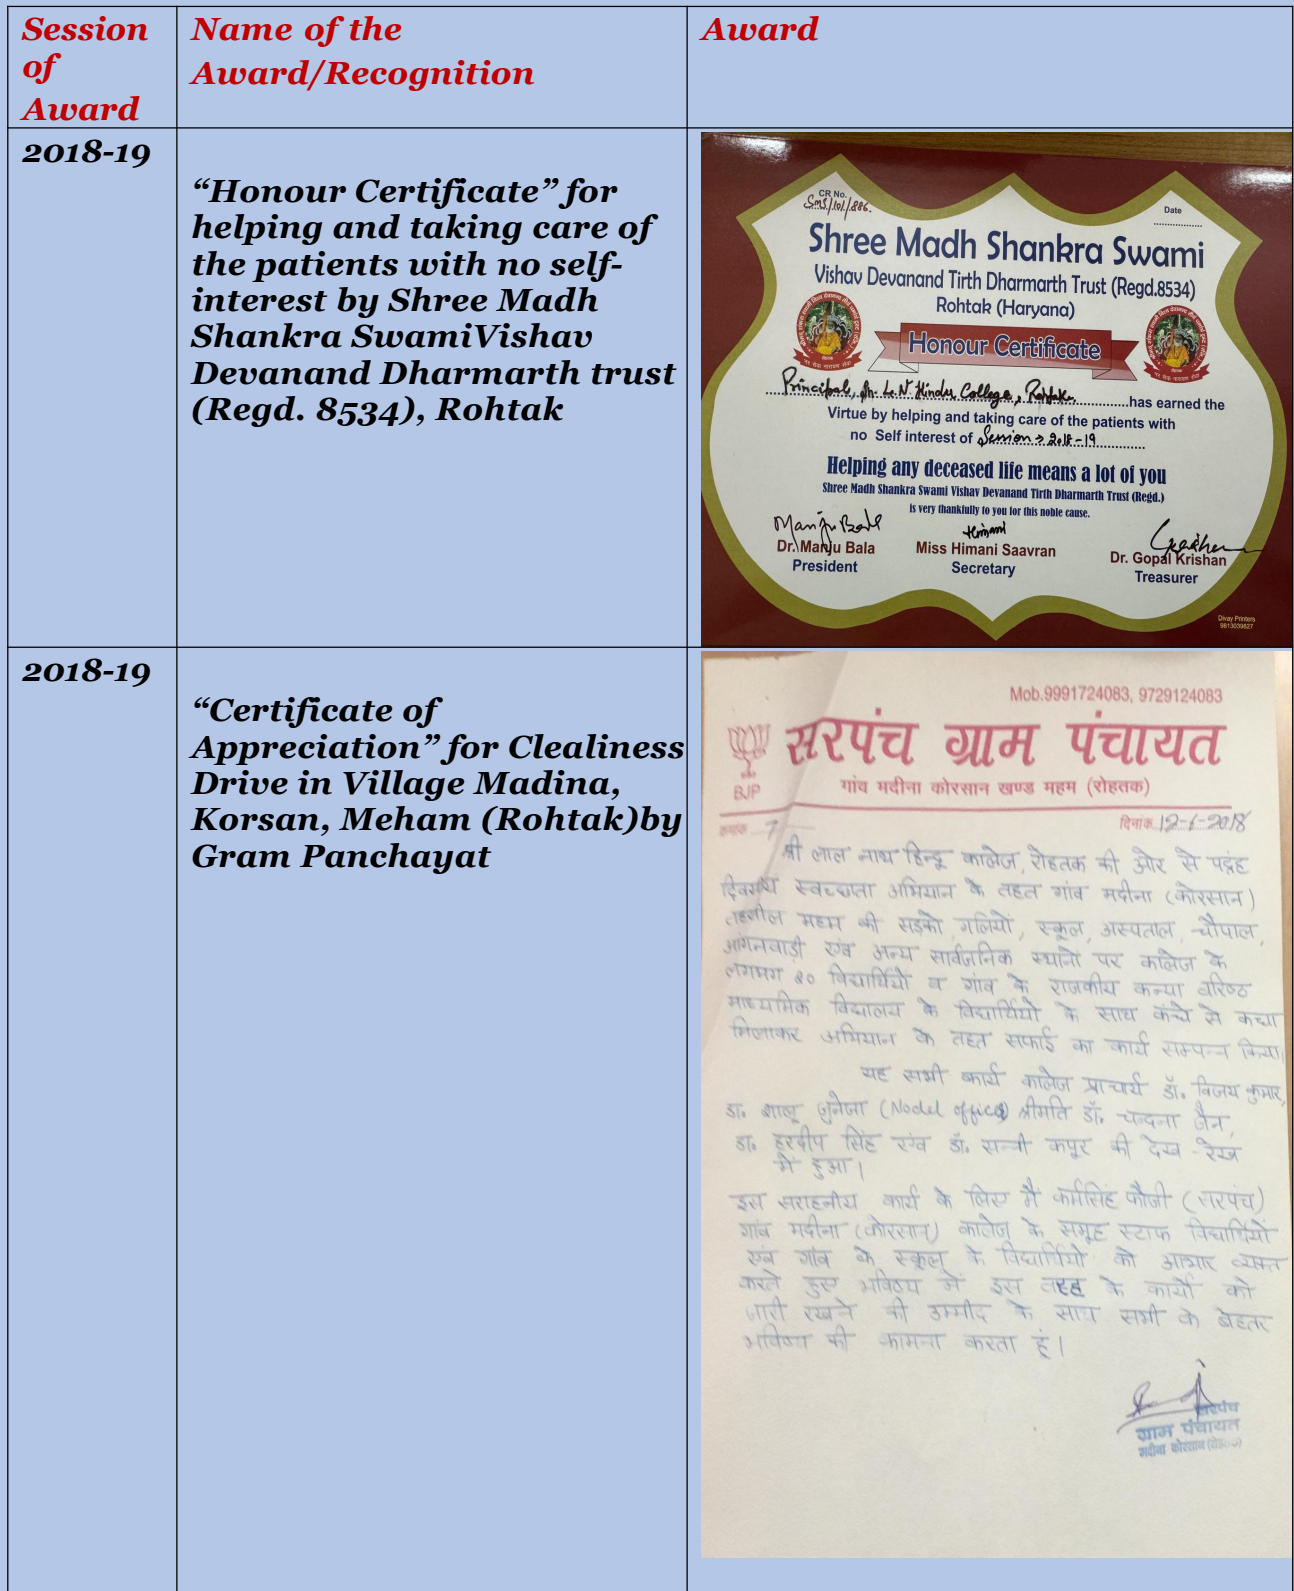 Session of Award
Name of the Award/Recognition
Award
2018-19
“Honour Certificate” for
helping and taking care of
the patients with no self-
interest by Shree Madh
Shankra SwamiVishav
Devanand Dharmarth trust
(Regd. 8534), Rohtak
CR No.
SMS/101/886.
Date
Shree Madh Shankra Swami
Vishav Devanand Tirth Dharmarth Trust (Regd.8534)
Rohtak (Haryana)
Honour Certificate
Principal, Sh. L.N Hindu College, Rohtak has earned the
Virtue by helping and taking care of the patients with
no Self interest of Session → 2018-19
Helping any deceased life means a lot of you
Shree Madh Shankra Swami Vishav Devanand Tirth Dharmarth Trust (Regd.)
is very thankfully to you for this noble cause.
Manju Bala
Himani
Dr. Manju Bala
President
Miss Himani Saavran
Secretary
Dr. Gopal Krishan
Treasurer
Divay Printers
9813039827
2018-19
“Certificate of
Appreciation” for Clealiness
Drive in Village Madina,
Korsan, Meham (Rohtak)by
Gram Panchayat
Mob.9991724083, 9729124083
सरपंच ग्राम पंचायत
BJP
गांव मदीना कोरसान खण्ड महम (रोहतक)
क्रमांक 7
दिनांक 12-6-2018
श्री लाल नाथ हिन्दू कालेज, रोहतक की ओर से पद्रंह
दिवसीय स्वच्छता अभियान के तहत गांव मदीना (कोरसान)
तहसील महम की सड़को, गलियों, स्कूल, अस्पताल, चौपाल,
आंगनवाड़ी एंव अन्य सार्वजनिक स्थानो पर कालेज के
लगभग २० विद्यार्थियो व गांव के राजकीय कन्या वरिष्ठ
माध्यमिक विद्यालय के विद्यार्थियो के साथ कंधे से कन्धा
मिलाकर अभियान के तहत सफाई का कार्य सम्पन्न किया।
यह सभी कार्य कालेज प्राचार्य डॉ. विजय कुमार,
डा. शालू जुनेजा (Nodel officer) श्रीमति डॉ. चन्दना जैन,
डा. हरदीप सिंह एंव डॉ. सन्नी कपूर की देख - रेख
में हुआ।
इस सराहनीय कार्य के लिए मैं कर्मसिंह फौजी (सरपंच)
गांव मदीना (कोरसान) कालेज के समूह स्टाफ विद्यार्थियों
एंव गांव के स्कूल के विद्यार्थियो को आभार व्यक्त
करते हुए भविष्य में इस तरह के कार्यो को
जारी रखने की उम्मीद के साथ सभी के बेहतर
भविष्य की कामना करता हूं।
सरपंच
ग्राम पंचायत
मदीना कोरसान (रोहतक)